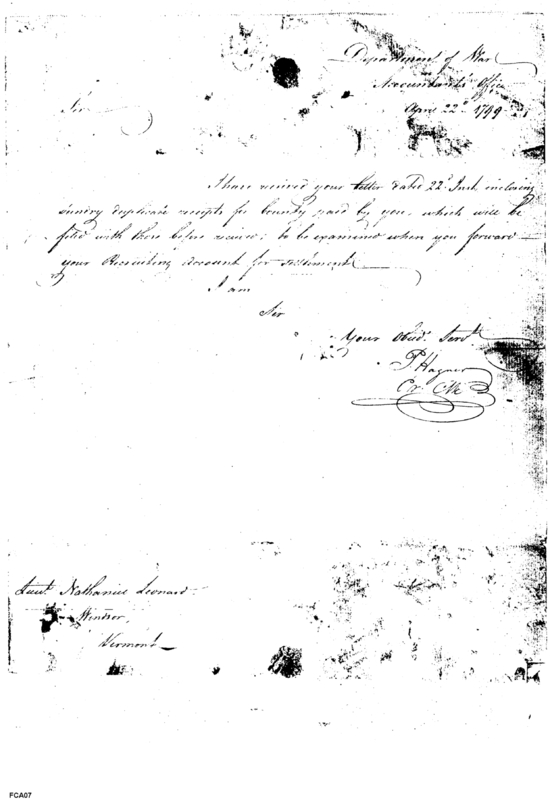 Department of War
Accountant's Office
April 22d 1799
Sir
I have received your letter dated 22d Inst. inclosing
sundry duplicate receipts for bounty paid by you, which will be
filed with those before received; to be examined when you forward
your Recruiting Account for settlement
I am
Sir
Your Obed. Servt.
P. Hagner
Clk
Lieut. Nathaniel Leonard
Windsor,
Vermont
FCA07